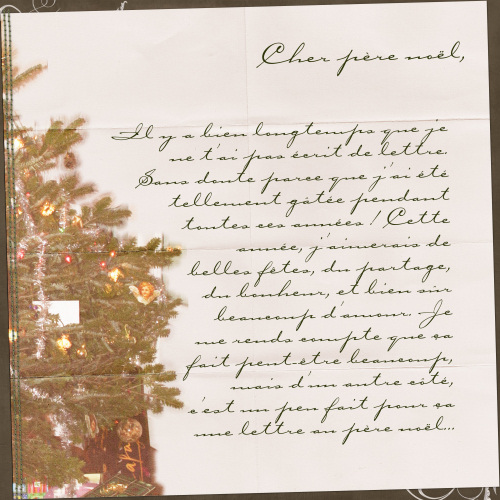 Cher père noël,
Il y a bien longtemps que je
ne t'ai pas écrit de lettre.
Sans doute parce que j'ai été
tellement gâtée pendant
toutes ces années ! Cette
année, j'aimerais de
belles fêtes, du partage,
du bonheur, et bien sûr
beaucoup d'amour. Je
me rends compte que ça
fait peut-être beaucoup,
mais d'un autre côté,
c'est un peu fait pour ça
une lettre au père noël...